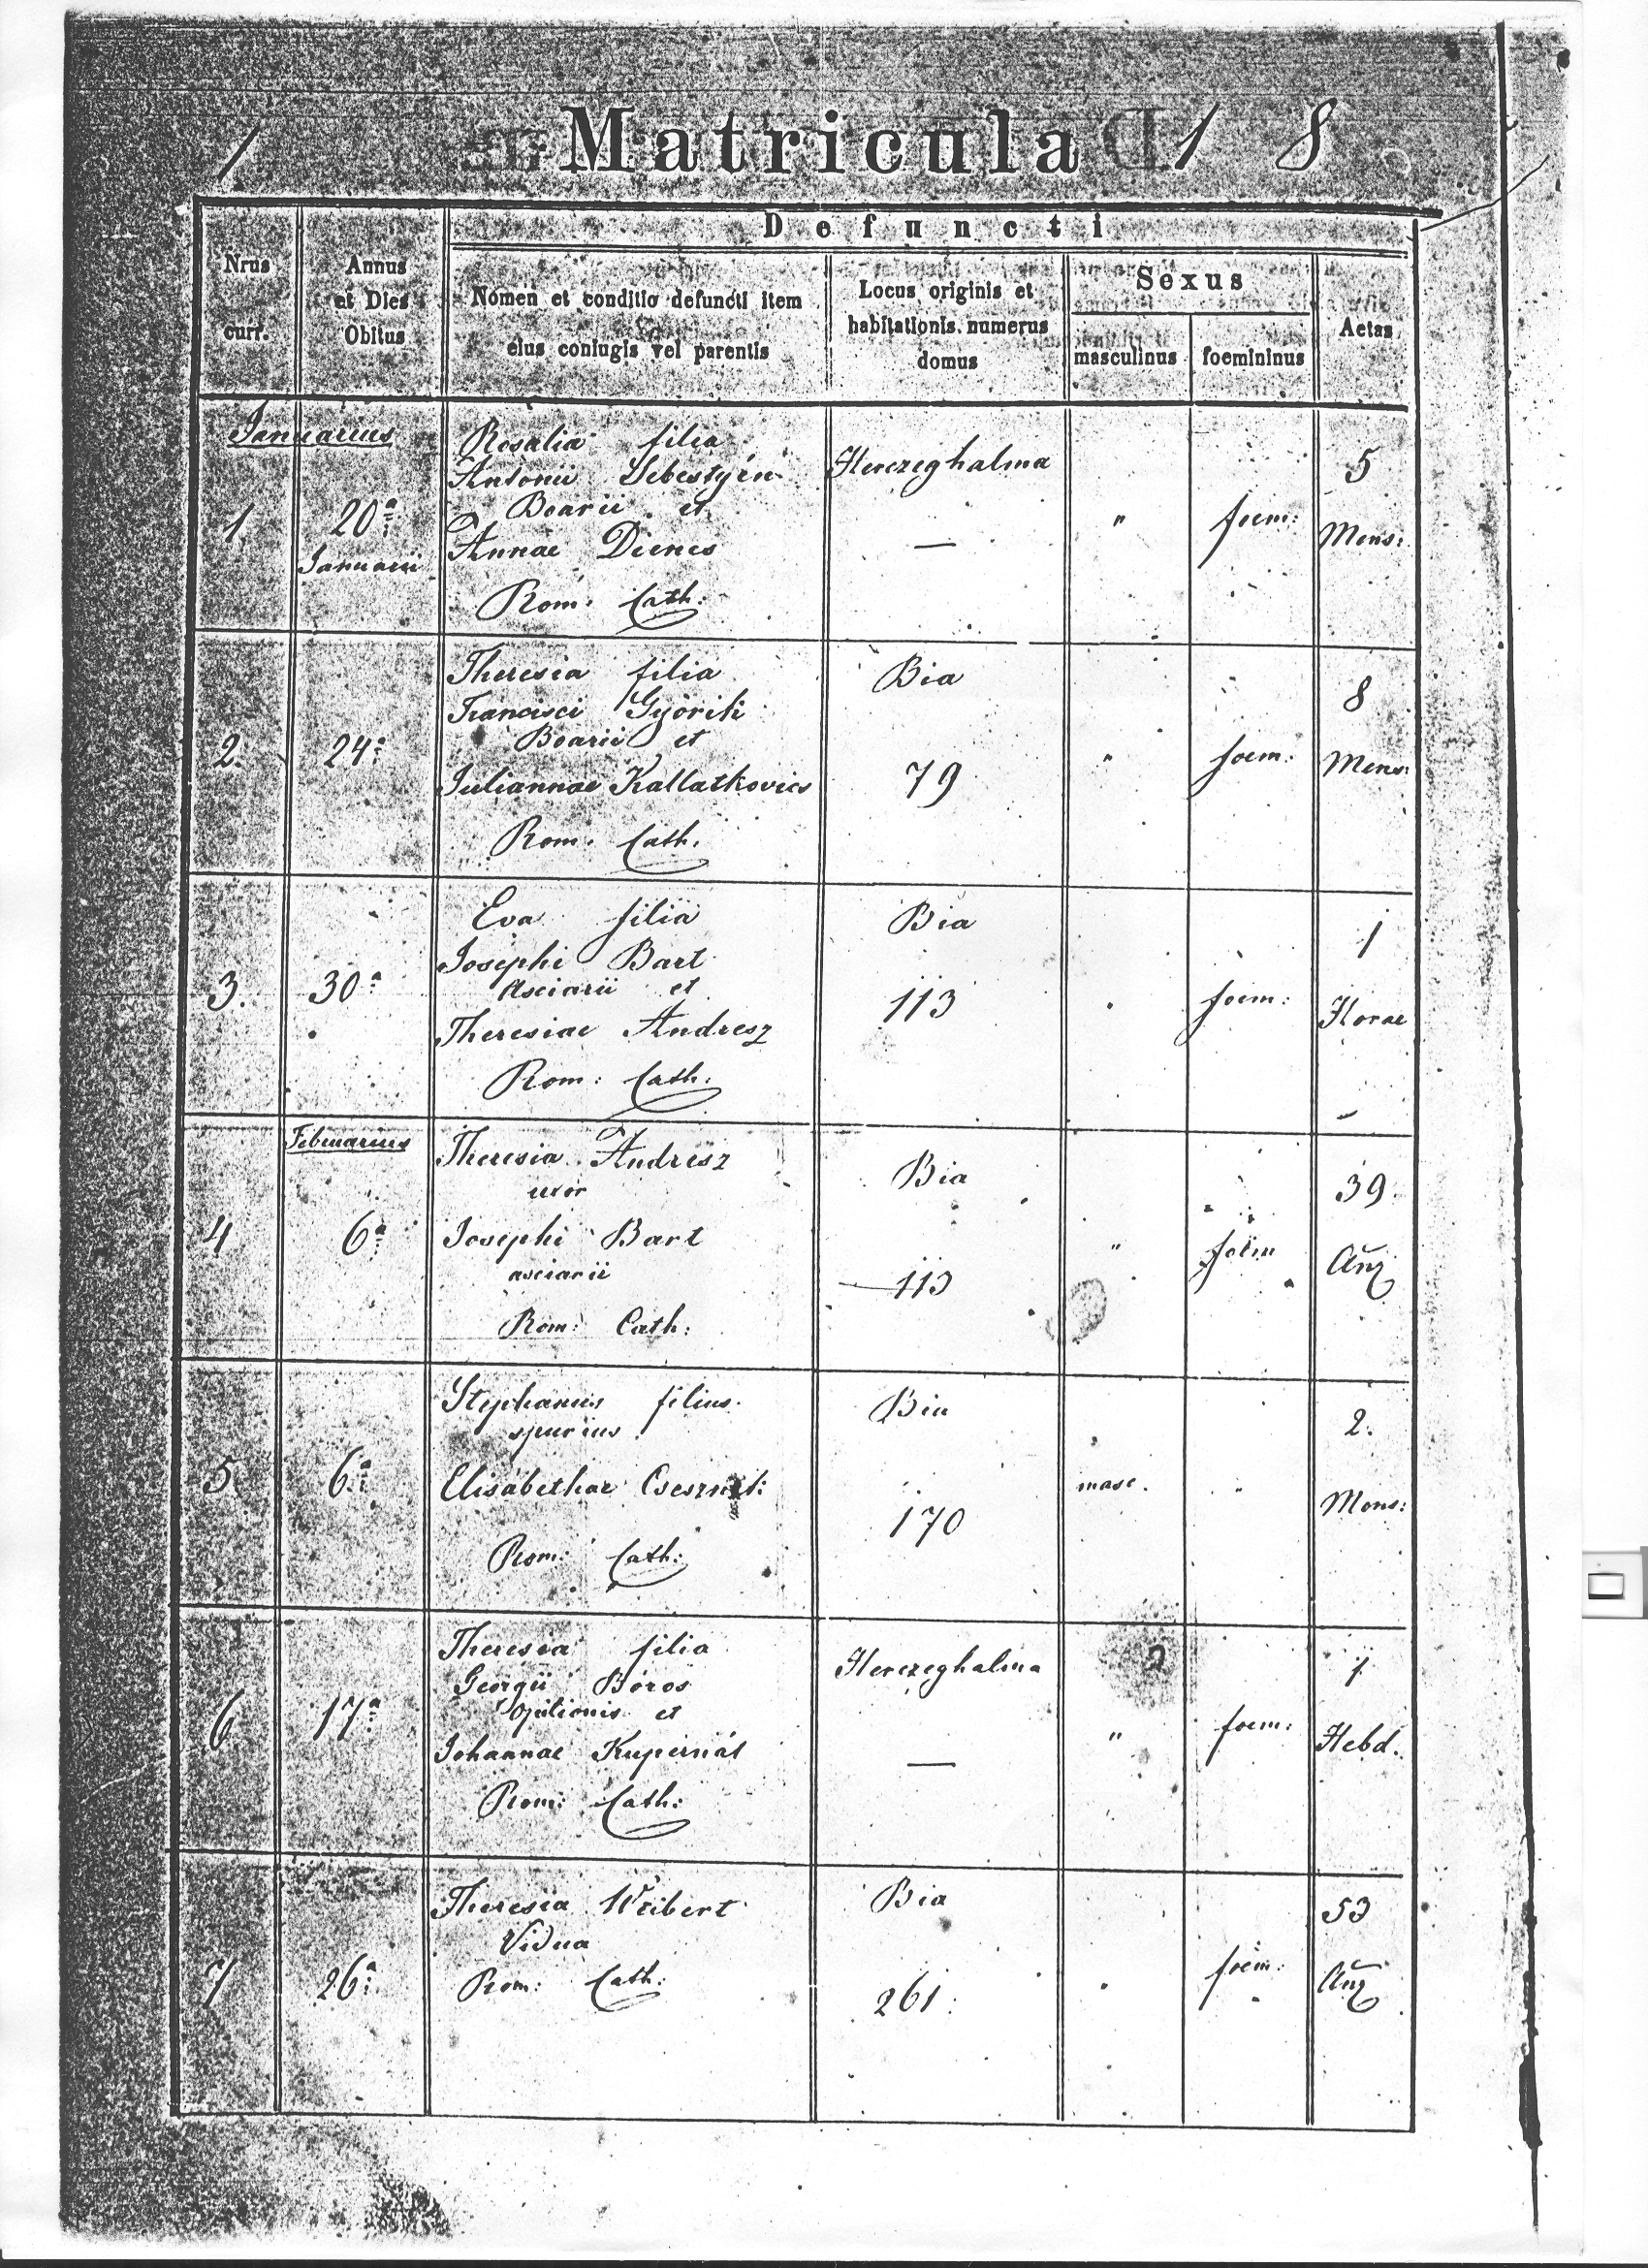 1 Matricula 1 8
Defuncti
Nrus
curr.
Annus
et Dies
Obitus
Nomen et conditio defuncti item
eius coniugis vel parentis
Locus originis et
habitationis numerus
domus
Sexus
masculinus foemininus
Aetas
Januarius
1
20ª
Januarii
Rosalia filia
Antonii Sebestyén
Boarii et
Annae Dienes
Rom. Cath:
Herczeghalma
—
"
foem:
5
Mens:
2.
24ª
Theresia filia
Francisci Györik
Boarii et
Juliannae Kallatkovics
Rom. Cath.
Bia
79
"
foem:
8
Mens:
3.
30ª
Eva filia
Josephi Bart
Asciarii et
Theresiae Andresz
Rom: Cath.
Bia
113
foem:
1
Horae
Februarius
4
6ª
Theresia Andresz
uxor
Josephi Bart
asciarii
Rom: Cath:
Bia
113
"
foem
39
5
6ª
Stephanus filius
spurius
Elisabethae
Rom: Cath:
Bia
170
masc.
"
2.
Mens:
6
17ª
Theresia filia
Georgii Boros
Opilionis et
Johannae Kupernát
Rom: Cath:
Herczeghalma
—
"
foem:
1
Hebd.
7
26ª
Theresia Weibert
Vidua
Rom: Cath:
Bia
261
foem:
53